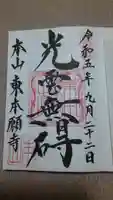 令和五年九月二十二日
光雲無碍
本山東本願寺